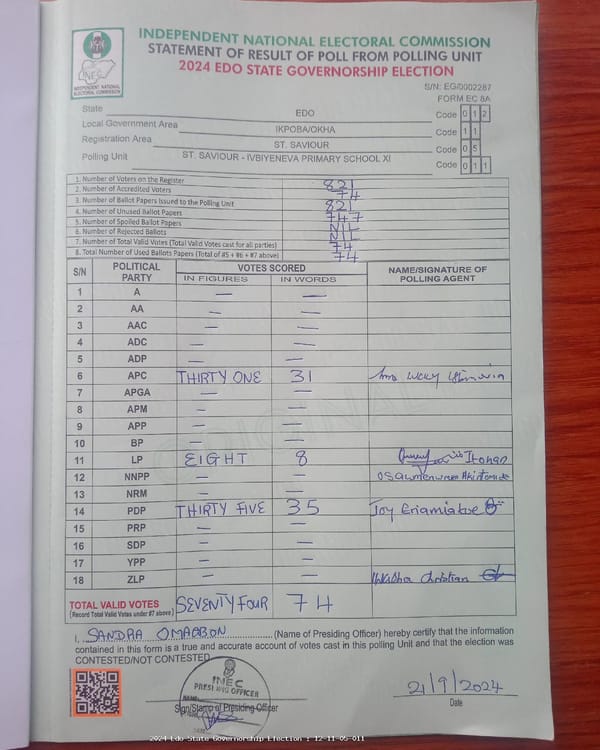 INDEPENDENT NATIONAL ELECTORAL COMMISSION
STATEMENT OF RESULT OF POLL FROM POLLING UNIT
2024 EDO STATE GOVERNORSHIP ELECTION
INEC
INDEPENDENT NATIONAL
ELECTORAL COMMISSION
S/N: EG/0002287
FORM EC 8A
State EDO Code 0 1 2
Local Government Area IKPOBA/OKHA Code 1 1
Registration Area ST. SAVIOUR Code 0 5
Polling Unit ST. SAVIOUR - IVBIYENEVA PRIMARY SCHOOL XI Code 0 1 1
1. Number of Voters on the Register 821
2. Number of Accredited Voters 74
3. Number of Ballot Papers Issued to the Polling Unit 821
4. Number of Unused Ballot Papers 747
5. Number of Spoiled Ballot Papers NIL
6. Number of Rejected Ballots NIL
7. Number of Total Valid Votes (Total Valid Votes cast for all parties) 74
8. Total Number of Used Ballots Papers (Total of #5 + #6 + #7 above) 74
S/N POLITICAL PARTY VOTES SCORED NAME/SIGNATURE OF POLLING AGENT
IN FIGURES IN WORDS
1 A — —
2 AA — —
3 AAC — —
4 ADC — —
5 ADP — —
6 APC THIRTY ONE 31
7 APGA — —
8 APM — —
9 APP — —
10 BP — —
11 LP EIGHT 8
12 NNPP — —
13 NRM — —
14 PDP THIRTY FIVE 35 Joy
15 PRP — —
16 SDP — —
17 YPP — —
18 ZLP — — Christian
TOTAL VALID VOTES SEVENTY FOUR 74
(Record Total Valid Votes under #7 above)
I, SANDRA OMAGBON (Name of Presiding Officer) hereby certify that the information
contained in this form is a true and accurate account of votes cast in this polling Unit and that the election was
CONTESTED/NOT CONTESTED
INEC
PRESIDING OFFICER
Sign/Stamp of Presiding Officer
21/9/2024
Date
2024 Edo State Governorship Election : 12-11-05-011